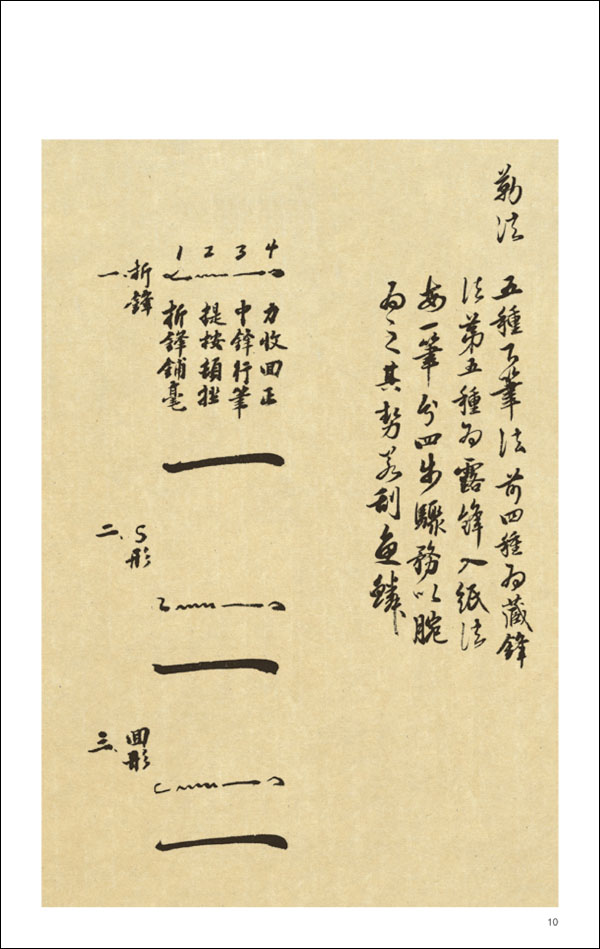 勒法
五種下筆法前四種為藏鋒
法第五種為露鋒入紙法
每一筆分四步驟務以腕
為之其勢若刮魚鱗
1 2 3 4
一、折鋒
折鋒鋪毫
提按頓挫
中鋒行筆
力收回正
二、S形
三、回形
10